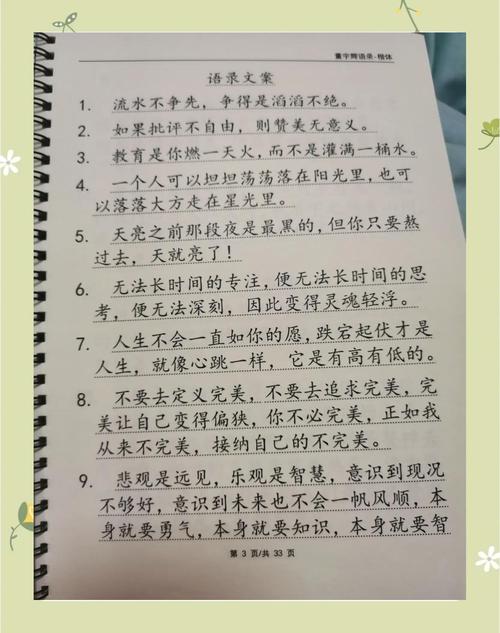 董宇辉语录-楷体
语录文案
1. 流水不争先，争得是滔滔不绝。
2. 如果批评不自由，则赞美无意义。
3. 教育是你燃一天火，而不是灌满一桶水。
4. 一个人可以坦坦荡荡落在阳光里，也可
以落落大方走在星光里。
5. 天亮之前那段夜是最黑的，但你只要熬
过去，天就亮了！
6. 无法长时间的专注，便无法长时间的思
考，便无法深刻，因此变得灵魂轻浮。
7. 人生不会一直如你的愿，跌宕起伏才是
人生，就像心跳一样，它是有高有低的。
8. 不要去定义完美，不要去追求完美，完
美让自己变得偏狭，你不必完美，正如我
从来不完美，接纳自己的不完美。
9. 悲观是远见，乐观是智慧，意识到现况
不够好，意识到未来也不会一帆风顺，本
身就要勇气，本身就要知识，本身就要智
第 3 页/共 33 页